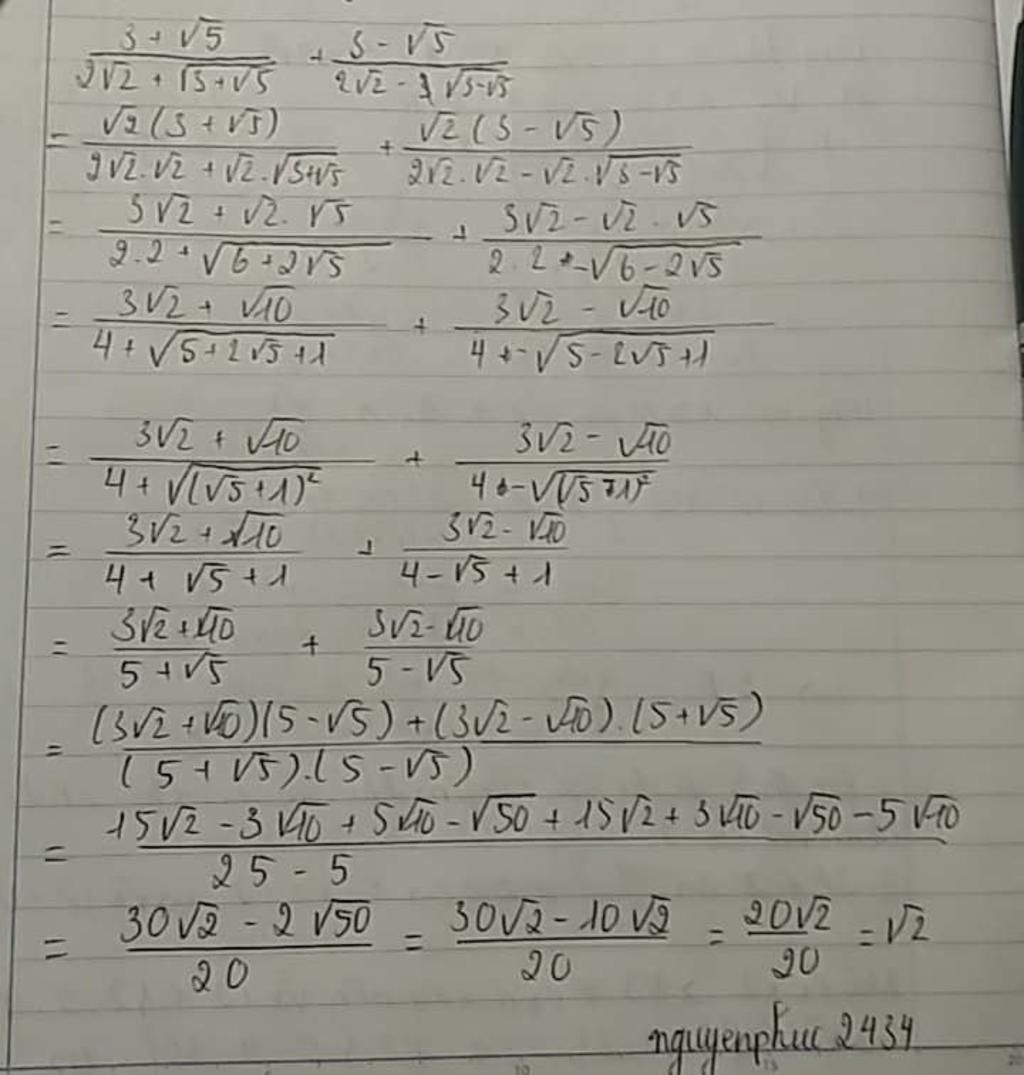 (3 + √5)/(2√2 + √(3+√5)) + (3 - √5)/(2√2 - √(3-√5))
= (√2(3 + √5))/(2√2.√2 + √2.√(3+√5)) + (√2(3 - √5))/(2√2.√2 - √2.√(3-√5))
= (3√2 + √2.√5)/(2.2 + √(6+2√5)) + (3√2 - √2.√5)/(2.2 - √(6-2√5))
= (3√2 + √10)/(4 + √(5+2√5+1)) + (3√2 - √10)/(4 - √(5-2√5+1))
= (3√2 + √10)/(4 + √((√5+1)²)) + (3√2 - √10)/(4 - √((√5-1)²))
= (3√2 + √10)/(4 + √5 + 1) + (3√2 - √10)/(4 - √5 + 1)
= (3√2+√10)/(5+√5) + (3√2-√10)/(5-√5)
= ((3√2+√10)(5-√5)+(3√2-√10).(5+√5))/((5+√5).(5-√5))
= (15√2 - 3√10 + 5√10 - √50 + 15√2 + 3√10 - √50 - 5√10)/(25 - 5)
= (30√2 - 2√50)/20 = (30√2 - 10√2)/20 = 20√2/20 = √2
nguyenphuc 2434